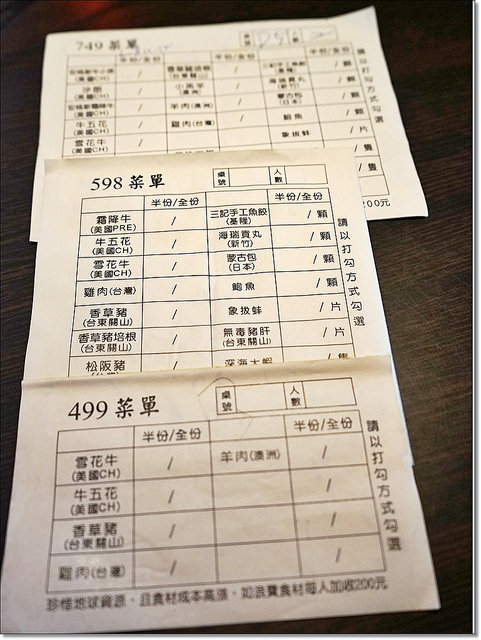 749 菜單
半份/全份 半份/全份 半份/全份
(美國CH) (台東關山) (基隆)
沙朗 / 小羔羊 / 海瑞貢丸 / 顆
(美國CH) (澳洲) (新竹)
羊肉(澳洲) / 蒙古包 / 顆
(美國CH) (日本)
牛五花 / 雞肉(台灣) / 鮑魚 / 顆
(美國CH)
雪花牛 象拔蚌 / 片
(美國CH)
/ 隻
/ 隻
請以打勾方式勾選
00元
598 菜單 桌號 人數
半份/全份 半份/全份
霜降牛 / 三記手工魚餃 / 顆
(美國PRE) (基隆)
牛五花 / 海瑞貢丸 / 顆
(美國CH) (新竹)
雪花牛 / 蒙古包 / 顆
(美國CH) (日本)
雞肉(台灣) / 鮑魚 / 顆
香草豬 / 象拔蚌 / 片
(台東關山)
香草豬培根 / 無毒豬肝 / 片
(台東關山) (台東關山)
松阪豬 / 深海大蝦 / 隻
請以打勾方式勾選
499 菜單 桌號 人數
半份/全份 半份/全份
雪花牛 / 羊肉(澳洲) /
(美國CH)
牛五花 / /
(美國CH)
香草豬 / /
(台東關山)
雞肉(台灣) / /
請以打勾方式勾選
珍惜地球資源,且食材成本高漲,如浪費食材每人加收200元